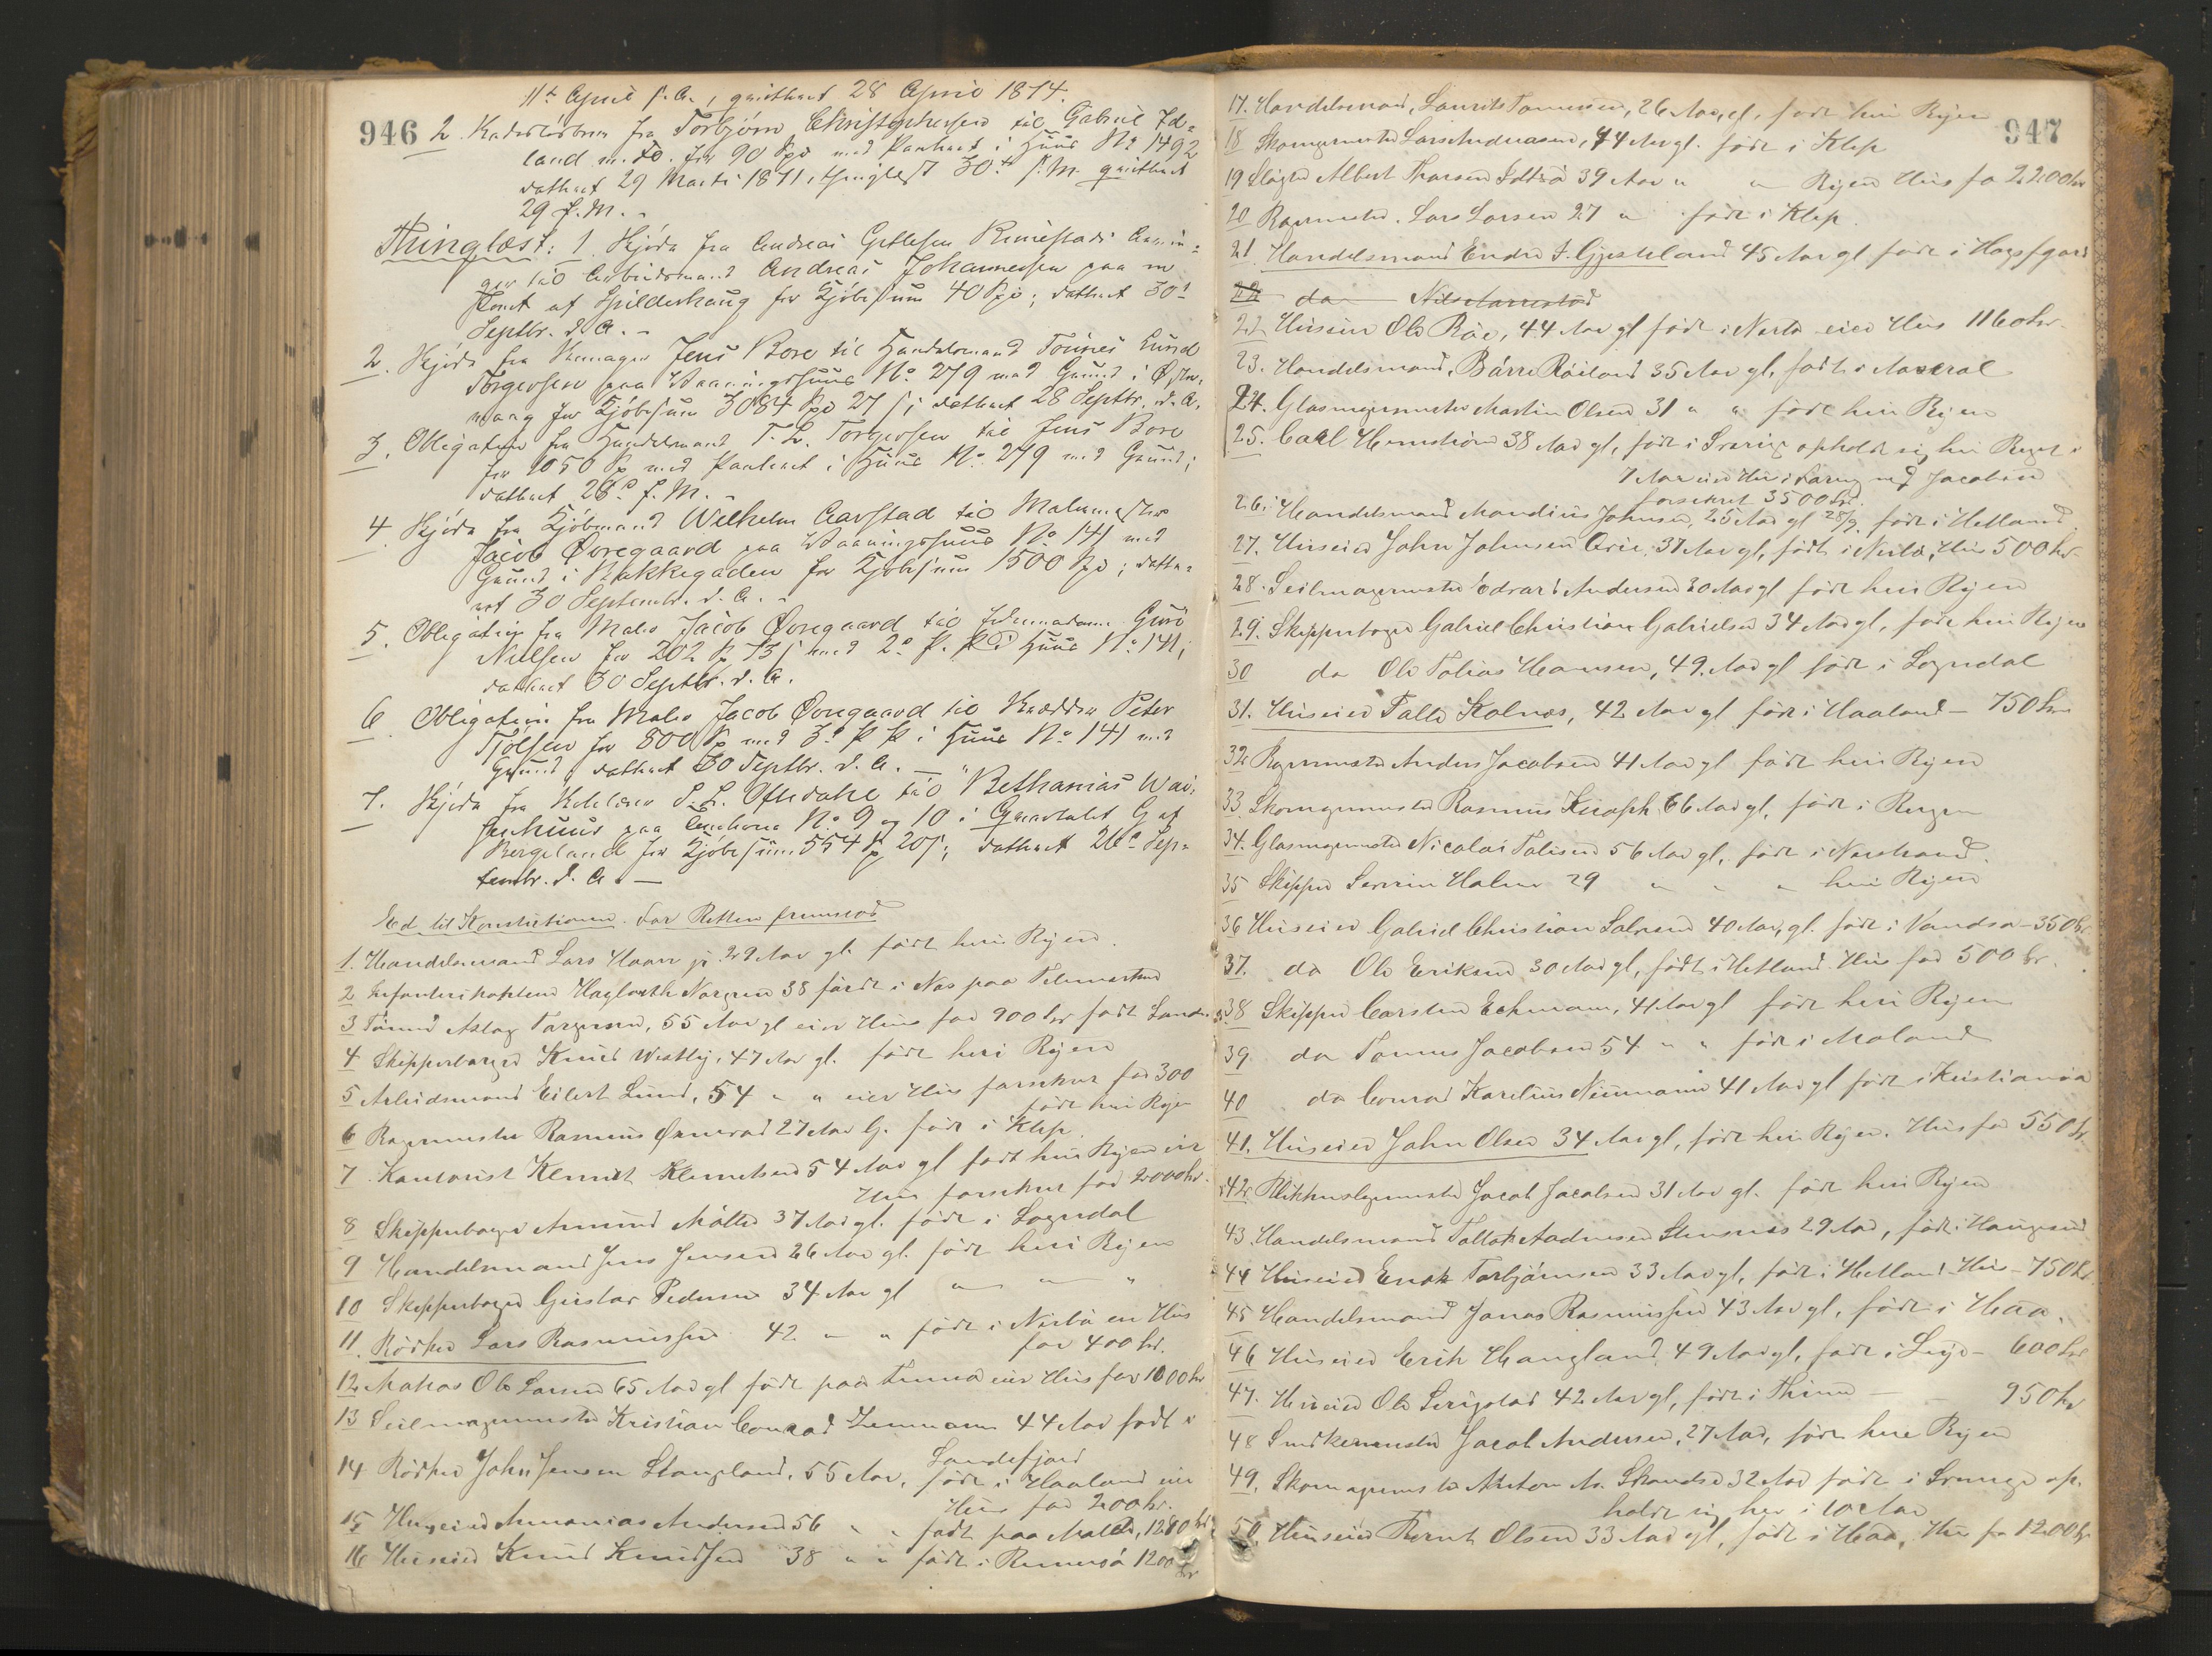 946
11te April s. A., quitteret 28 April 1874.
2. Kadastørbrev fra Torbjørn Christophersen til Gabriel Id=
land m. fl. for 90 Spd med Panteret i Huus No 1492
datteret 29 Marts 1871, thinglæst 30te s. M. quitteret
29 f. M. -
Thinglæst: 1. Skjøde fra Andreas Gitlesen Rimestads Arvin=
ger til Arbeidsmand Andreas Johannesen paa en
Tomt af Spilderhaug for Kjøbesum 40 Spd; datteret 30te
Septbr. d. A. -
2. Skjøde fra Jens Bore til Handelsmand Tønnes Lund
Torgersen paa Vaaningshuus No. 279 med Grund i Østre,
vaag for Kjøbesum 3084 Spd 27 s; datteret 28 Septbr. d. A.
3. Obligation fra Handelsmand T. L. Torgersen til Jens Bore
for 1050 Sp med Panteret i Huus No. 279 med Grund;
datteret 28de f. M. -
4. Skjøde fra Kjøbmand Wilhelm Aarstad til Malermester
Jacob Øvregaard paa Vaaningshuus No. 141 med
Grund i Bakkegaden for Kjøbesum 1500 Spd; datte=
ret 30 Septembr. d. A. -
5. Obligation fra Maler Jacob Øvregaard til Guri
Nielsen for 202 Sp 73 s med 2. P. P. i Huus No. 141;
datteret 30 Septbr. d. A.
6. Obligation fra Maler Jacob Øvregaard til Skrædder Peter
Tjølsen for 800 Sp med 3. P. P. i Huus No. 141 med
Grund, datteret 30 Septbr. d. A. -
7. Skjøde fra S. L. Oftedahl til "Bethanias" Wai=
senhuus paa No. 9 og 10 i Qvartalet G af
Bergeland for Kjøbesum 554 Sp 20 s; datteret 26de Sep=
tembr. d. A. -
Ed til Konstitutionen. For Retten fremstod
1. Handelsmand Lars Haar jr. 29 Aar gl. født her i Byen.
2 Infanterikaptein Norgren 38 født i Nes paa Telemarken
3 Aslag Torgersen, 55 Aar gl eier Hus for 900 kr født
4 Skipperborger Knud Westby, 47 Aar gl. født her i Byen
5 Arbeidsmand Eilert Lund, 54 " " eier Hus forsikret for 300
født her i Byen
6 Rasmus 27 Aar G. født i Klep
7. Kontorist Klemet Klemetsen 54 Aar gl født her i Byen eier
Hus forsikret for 2000 kr.
8 Skipperborger Amund Mølle 37 Aar gl. født i Sogndal
9 Handelsmand Jens Jensen 26 Aar gl. født her i Byen
10 Skipperborger Gustav Pedersen 34 Aar gl " " "
11. Rødker Lars Rasmussen 42 " " født i Nerbø en Hus
for 400 kr.
12. Matros Ole Larsen 65 Aar gl født paa eier Hus for 1000 kr
13 Seilmagermester Kristian Conrad Zimmermann 44 Aar født i
Sandefjord
14 Rødker John Jensen Stangeland, 55 Aar, født i Haaland eier
Hus for 200 kr.
15 Huseier Ananias Andersen 56 " " født paa 1280 kr
16 Huseier Knud Knudsen 38 " " født i Rennesø 1200 kr
947
17. Handelsmand, Laurits Tønnessen, 26 Aar gl, født her i Byen
18 Skomagermester Lars Andreasen, 44 Aar gl. født i Klep
19 Albert Thorsen 39 Aar " " Byen Hus for 2200 kr
20 Lars Larsen 27 " født i Klep.
21. Handelsmand Endre J. Gjesteland 45 Aar gl født i Høgsfjord
22 do Nils Aarrestad
22 Huseier Ole Røe, 44 Aar gl født i Nerbø eier Hus 1160 kr.
23. Handelsmand, Børre Røiland 35 Aar gl, født i Aaseral
24. Glasmagermester Martin Olsen 31 " " født her i Byen
25. Carl 38 Aar gl, født i Sverig opholdt sig her i Byen i
7 Aar eier Hus i med Jacobsen
forsikret 3500 kr.
26. Handelsmand Johnsen, 25 Aar gl 28/9. født i Hetland.
27. Huseier John Johnsen 37 Aar gl, født i Nerbø, Hus 500 kr
28. Seilmagermester Edvard Andersen 30 Aar gl født her i Byen
29. Skipperborger Gabriel Christian Gabrielsen 34 Aar gl, født her i Byen
30 do Ole Tobias Hansen, 49 Aar gl født i Sogndal
31. Huseier Kalnes, 42 Aar gl født i Haaland - 750 kr
32 Anders Jacobsen 41 Aar gl født her i Byen
33. Skomagermester Rasmus 66 Aar gl, født i Bergen
34. Glasmagermester Nicolai Tobisen 56 Aar gl, født i Nerstrand.
35 Skipper Severin Holm 29 " " " her i Byen
36 Huseier Gabriel Christian Salvesen 40 Aar, gl. født i Vandsø - 350 kr
37. do Ole Eriksen 30 Aar gl, født i Hetland Hus for 500 kr.
38 Skipper Carsten Echmann, 41 Aar gl født her i Byen
39. do Tønnes Jacobsen 54 " " født i Moland
40 do Conrad Karelius Niumann 41 Aar gl født i Kristiania
41. Huseier John Olsen 34 Aar gl, født her i Byen. Hus for 550 kr
42. Blikkenslagermester Jacob Jacobsen 31 Aar gl. født her i Byen
43. Handelsmand Tallak Andersen Stensnes 29 Aar, født i Haugesund
44 Huseier Enok Torbjørnsen 33 Aar gl, født i Hetland Hus - 750 kr
45 Handelsmand Jonas Rasmussen 43 Aar gl, født i Haa.
46 Huseier Erik Haugland, 49 Aar gl, født i Lye - 600 kr
47. Huseier Ole Serigstad 42 Aar gl, født i Thime - - 950 kr
48 Jacob Andersen, 27 Aar, født her i Byen
49. Skomagermester Anton A. 32 Aar født i Sverige op=
holdt sig her i 10 Aar
50. Huseier Bernt Olsen 33 Aar gl, født i Haa, Hus for 1200 kr